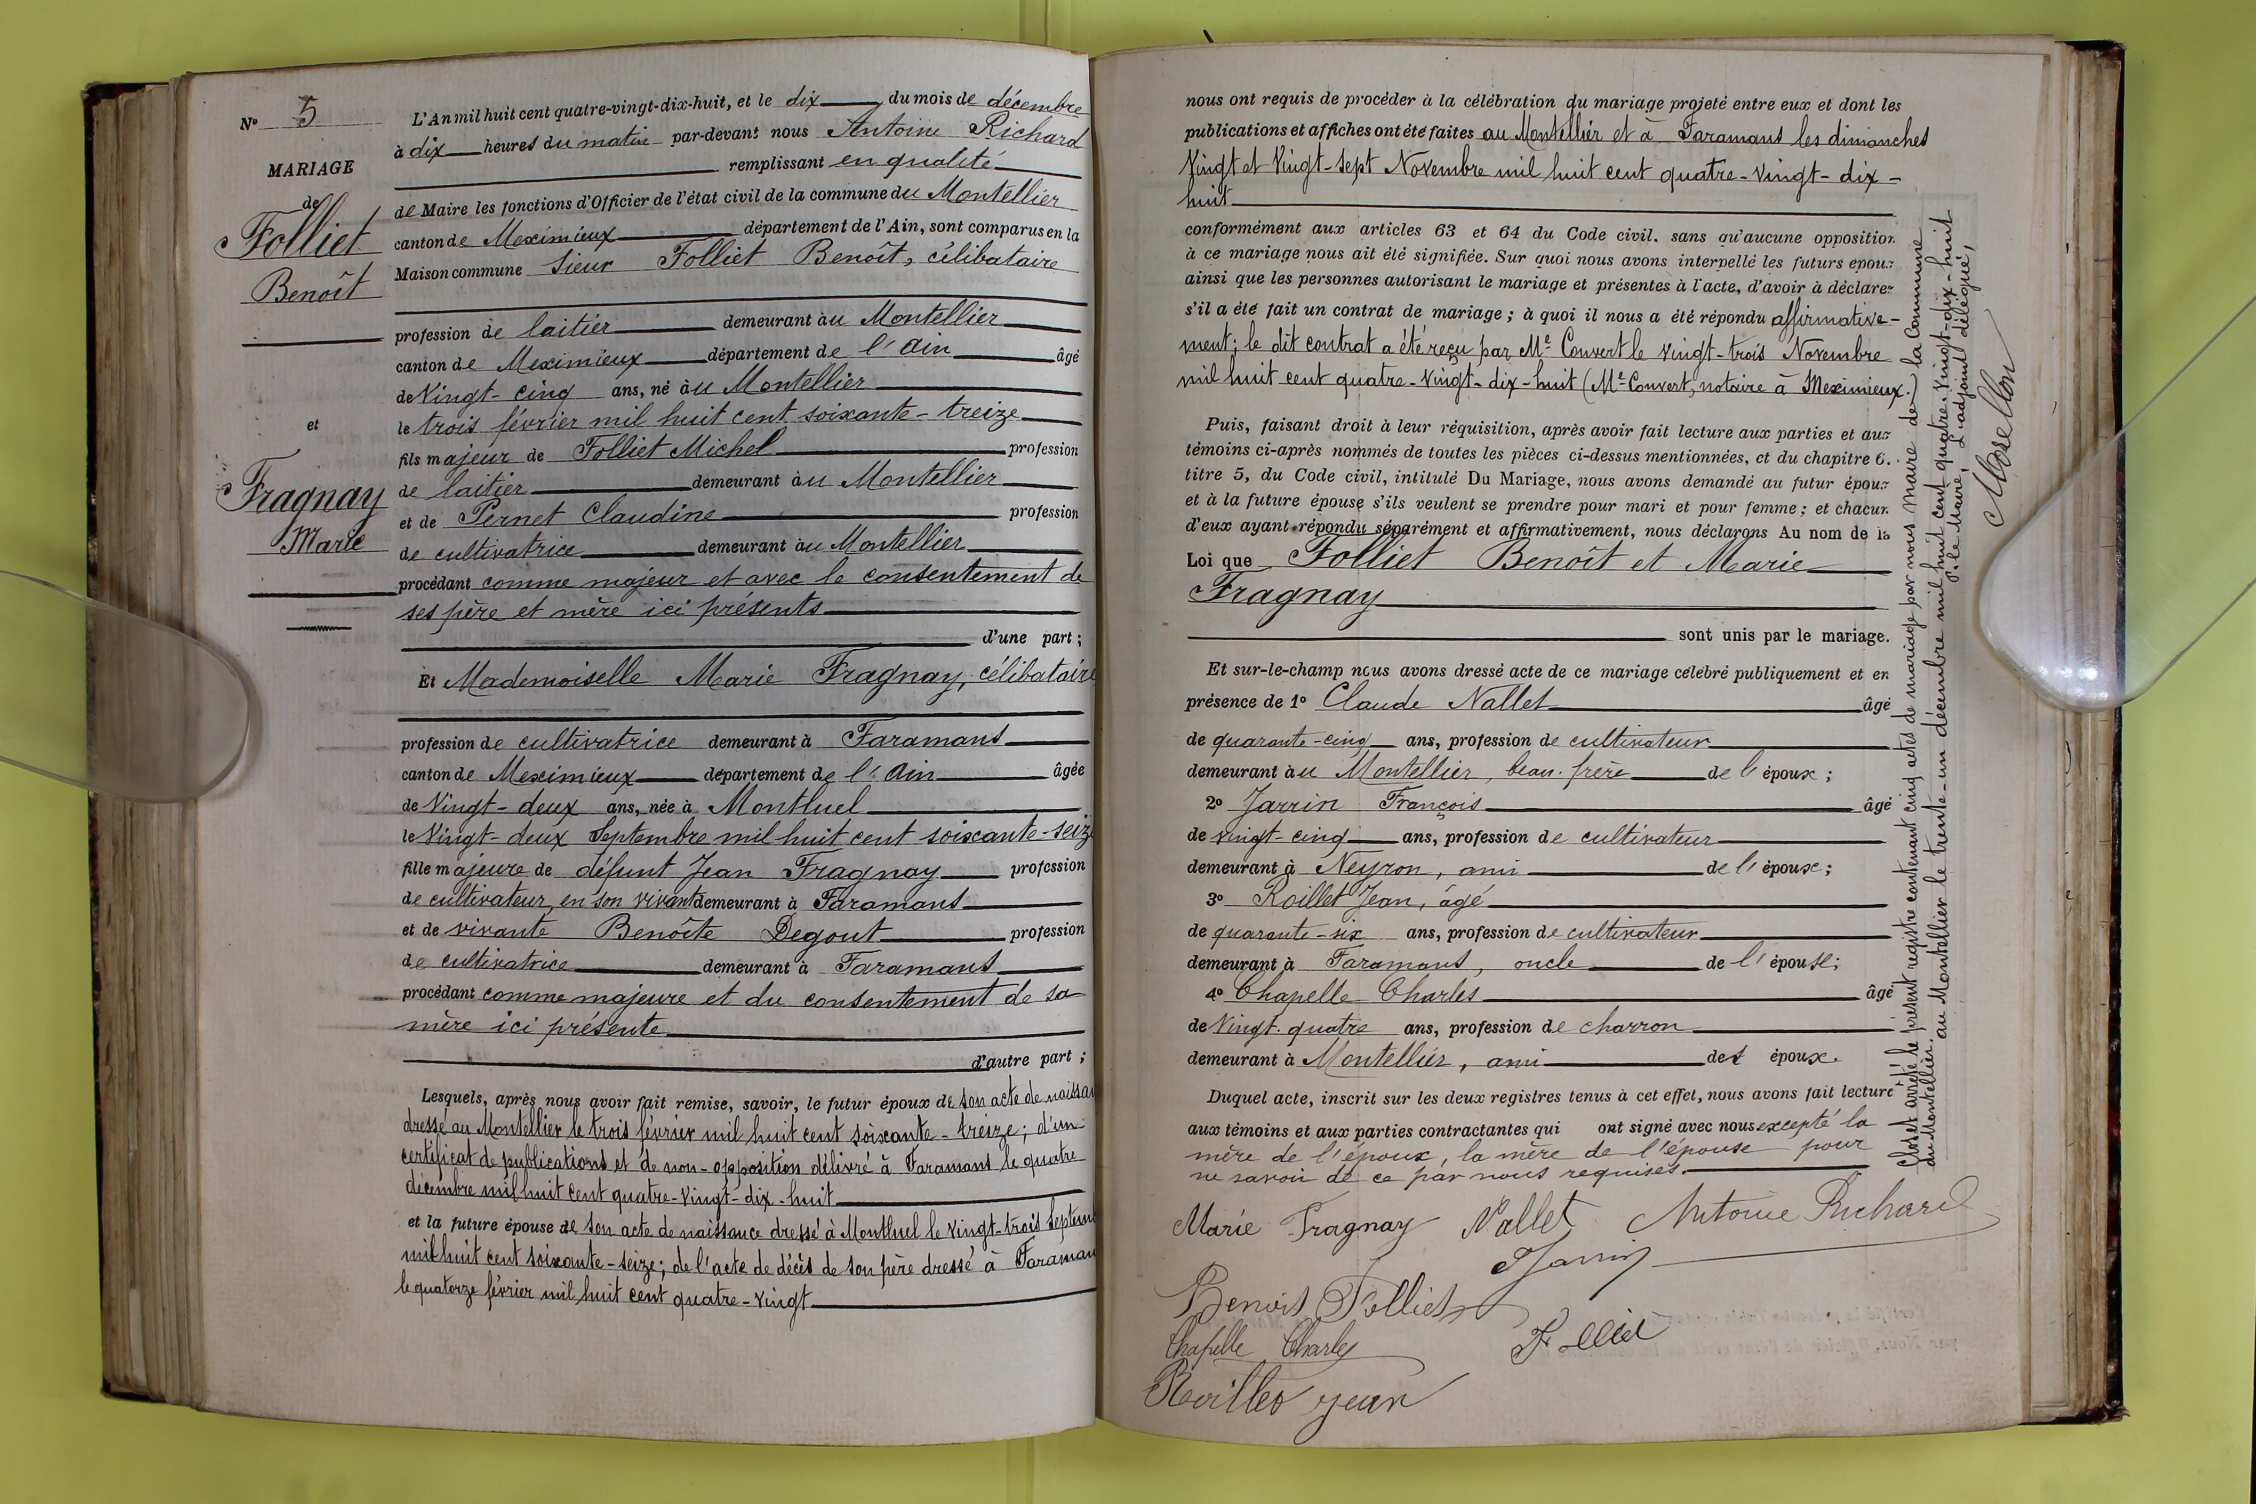 N° 5
MARIAGE
de
Folliet
Benoît
et
Fragnay
Marie
L'An mil huit cent quatre-vingt-dix-huit, et le dix du mois de décembre
à dix heures du matin par-devant nous Antoine Richard
remplissant en qualité
de Maire les fonctions d'Officier de l'état civil de la commune du Montellier
canton de Meximieux département de l'Ain, sont comparus en la
Maison commune Sieur Folliet Benoît, célibataire
profession de laitier demeurant au Montellier
canton de Meximieux département de l'Ain âgé
de Vingt-cinq ans, né au Montellier
le trois février mil huit cent soixante-treize
fils majeur de Folliet Michel profession
de laitier demeurant au Montellier
et de Pernet Claudine profession
de cultivatrice demeurant au Montellier
procédant comme majeur et avec le consentement de
ses père et mère ici présents
d'une part ;
Et Mademoiselle Marie Fragnay, célibataire
profession de cultivatrice demeurant à Faramans
canton de Meximieux département de l'Ain âgée
de Vingt-deux ans, née à Montluel
le Vingt-deux Septembre mil huit cent soixante-seize
fille majeure de défunt Jean Fragnay profession
de cultivateur en son vivant demeurant à Faramans
et de vivante Benoîte Degout profession
de cultivatrice demeurant à Faramans
procédant comme majeure et du consentement de sa
mère ici présente
d'autre part ;
Lesquels, après nous avoir fait remise, savoir, le futur époux de son acte de naissan
dressé au Montellier le trois février mil huit cent soixante-treize ; d'un
certificat de publications et de non-opposition délivré à Faramans le quatre
décembre mil huit cent quatre-Vingt-dix-huit
et la future épouse de son acte de naissance dressé à Montluel le Vingt-trois Septem
mil huit cent soixante-seize ; de l'acte de décès de son père dressé à Faraman
le quatorze février mil huit cent quatre-Vingt
nous ont requis de procéder à la célébration du mariage projeté entre eux et dont les
publications et affiches ont été faites au Montellier et à Faramans les dimanches
Vingt et Vingt-sept Novembre mil huit cent quatre-Vingt-dix-
huit
conformément aux articles 63 et 64 du Code civil. sans qu'aucune opposition
à ce mariage nous ait été signifiée. Sur quoi nous avons interpellé les futurs époux
ainsi que les personnes autorisant le mariage et présentes à l'acte, d'avoir à déclarer
s'il a été fait un contrat de mariage ; à quoi il nous a été répondu affirmative-
ment ; le dit contrat a été reçu par Me Convert le Vingt-trois Novembre
mil huit cent quatre-Vingt-dix-huit (Me Convert, notaire à Meximieux.)
Puis, faisant droit à leur réquisition, après avoir fait lecture aux parties et aux
témoins ci-après nommés de toutes les pièces ci-dessus mentionnées, et du chapitre 6.
titre 5, du Code civil, intitulé Du Mariage, nous avons demandé au futur époux
et à la future épouse s'ils veulent se prendre pour mari et pour femme ; et chacun
d'eux ayant répondu séparément et affirmativement, nous déclarons Au nom de la
Loi que Folliet Benoît et Marie
Fragnay
sont unis par le mariage.
Et sur-le-champ nous avons dressé acte de ce mariage célébré publiquement et en
présence de 1° Claude Nallet âgé
de quarante-cinq ans, profession de cultivateur
demeurant au Montellier, beau-frère de l'époux ;
2° Jarrin François âgé
de vingt-cinq ans, profession de cultivateur
demeurant à Neyron, ami de l'époux ;
3° Roillet Jean, âgé
de quarante-six ans, profession de cultivateur
demeurant à Faramans, oncle de l'épouse ;
4° Chapelle Charles âgé
de Vingt-quatre ans, profession de charron
demeurant à Montellier, ami des époux.
Duquel acte, inscrit sur les deux registres tenus à cet effet, nous avons fait lecture
aux témoins et aux parties contractantes qui ont signé avec nous excepté la
mère de l'époux, la mère de l'épouse pour
ne savoir de ce par nous requises.
Marie Fragnay Nallet Antoine Richard
Jarrin
Benoit Folliet
Chapelle Charles Folliet
Roillet jean
Clos et arrêté le présent registre contenant cinq actes de mariage par nous maire de la Commune
du Montellier.
au Montellier le trente-un décembre mil huit cent quatre-Vingt-dix-huit
P. le Maire, L'adjoint délégué,
Mosellon